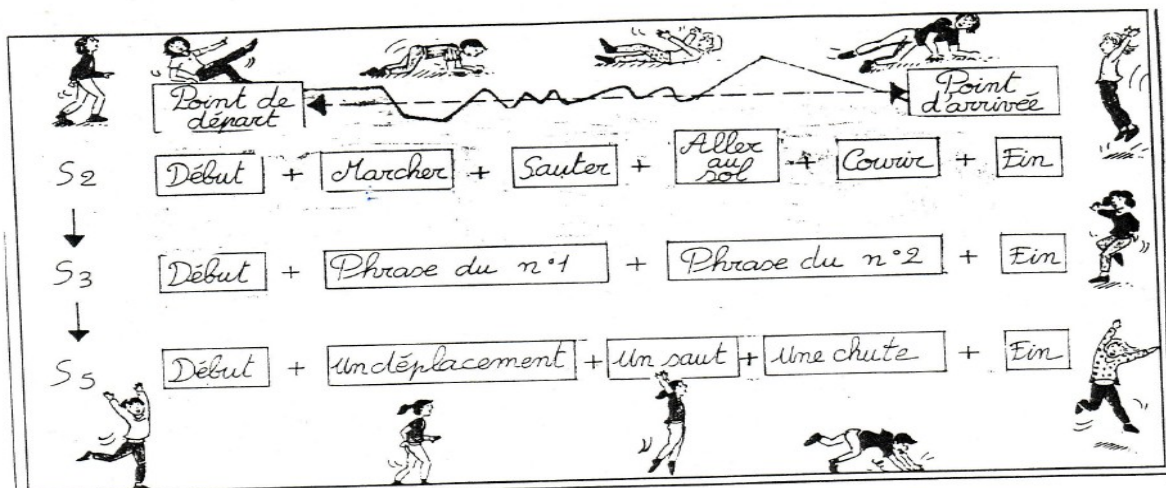 Point de départ
Point d'arrivée
S2 Début + Marcher + Sauter + Aller au sol + Courir + Fin
S3 Début + Phrase du n°1 + Phrase du n°2 + Fin
S5 Début + Un déplacement + Un saut + Une chute + Fin